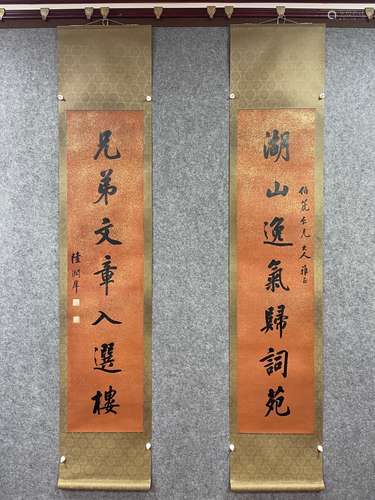 湖山逸氣歸詞苑
兄弟文章入選樓
陸潤庠